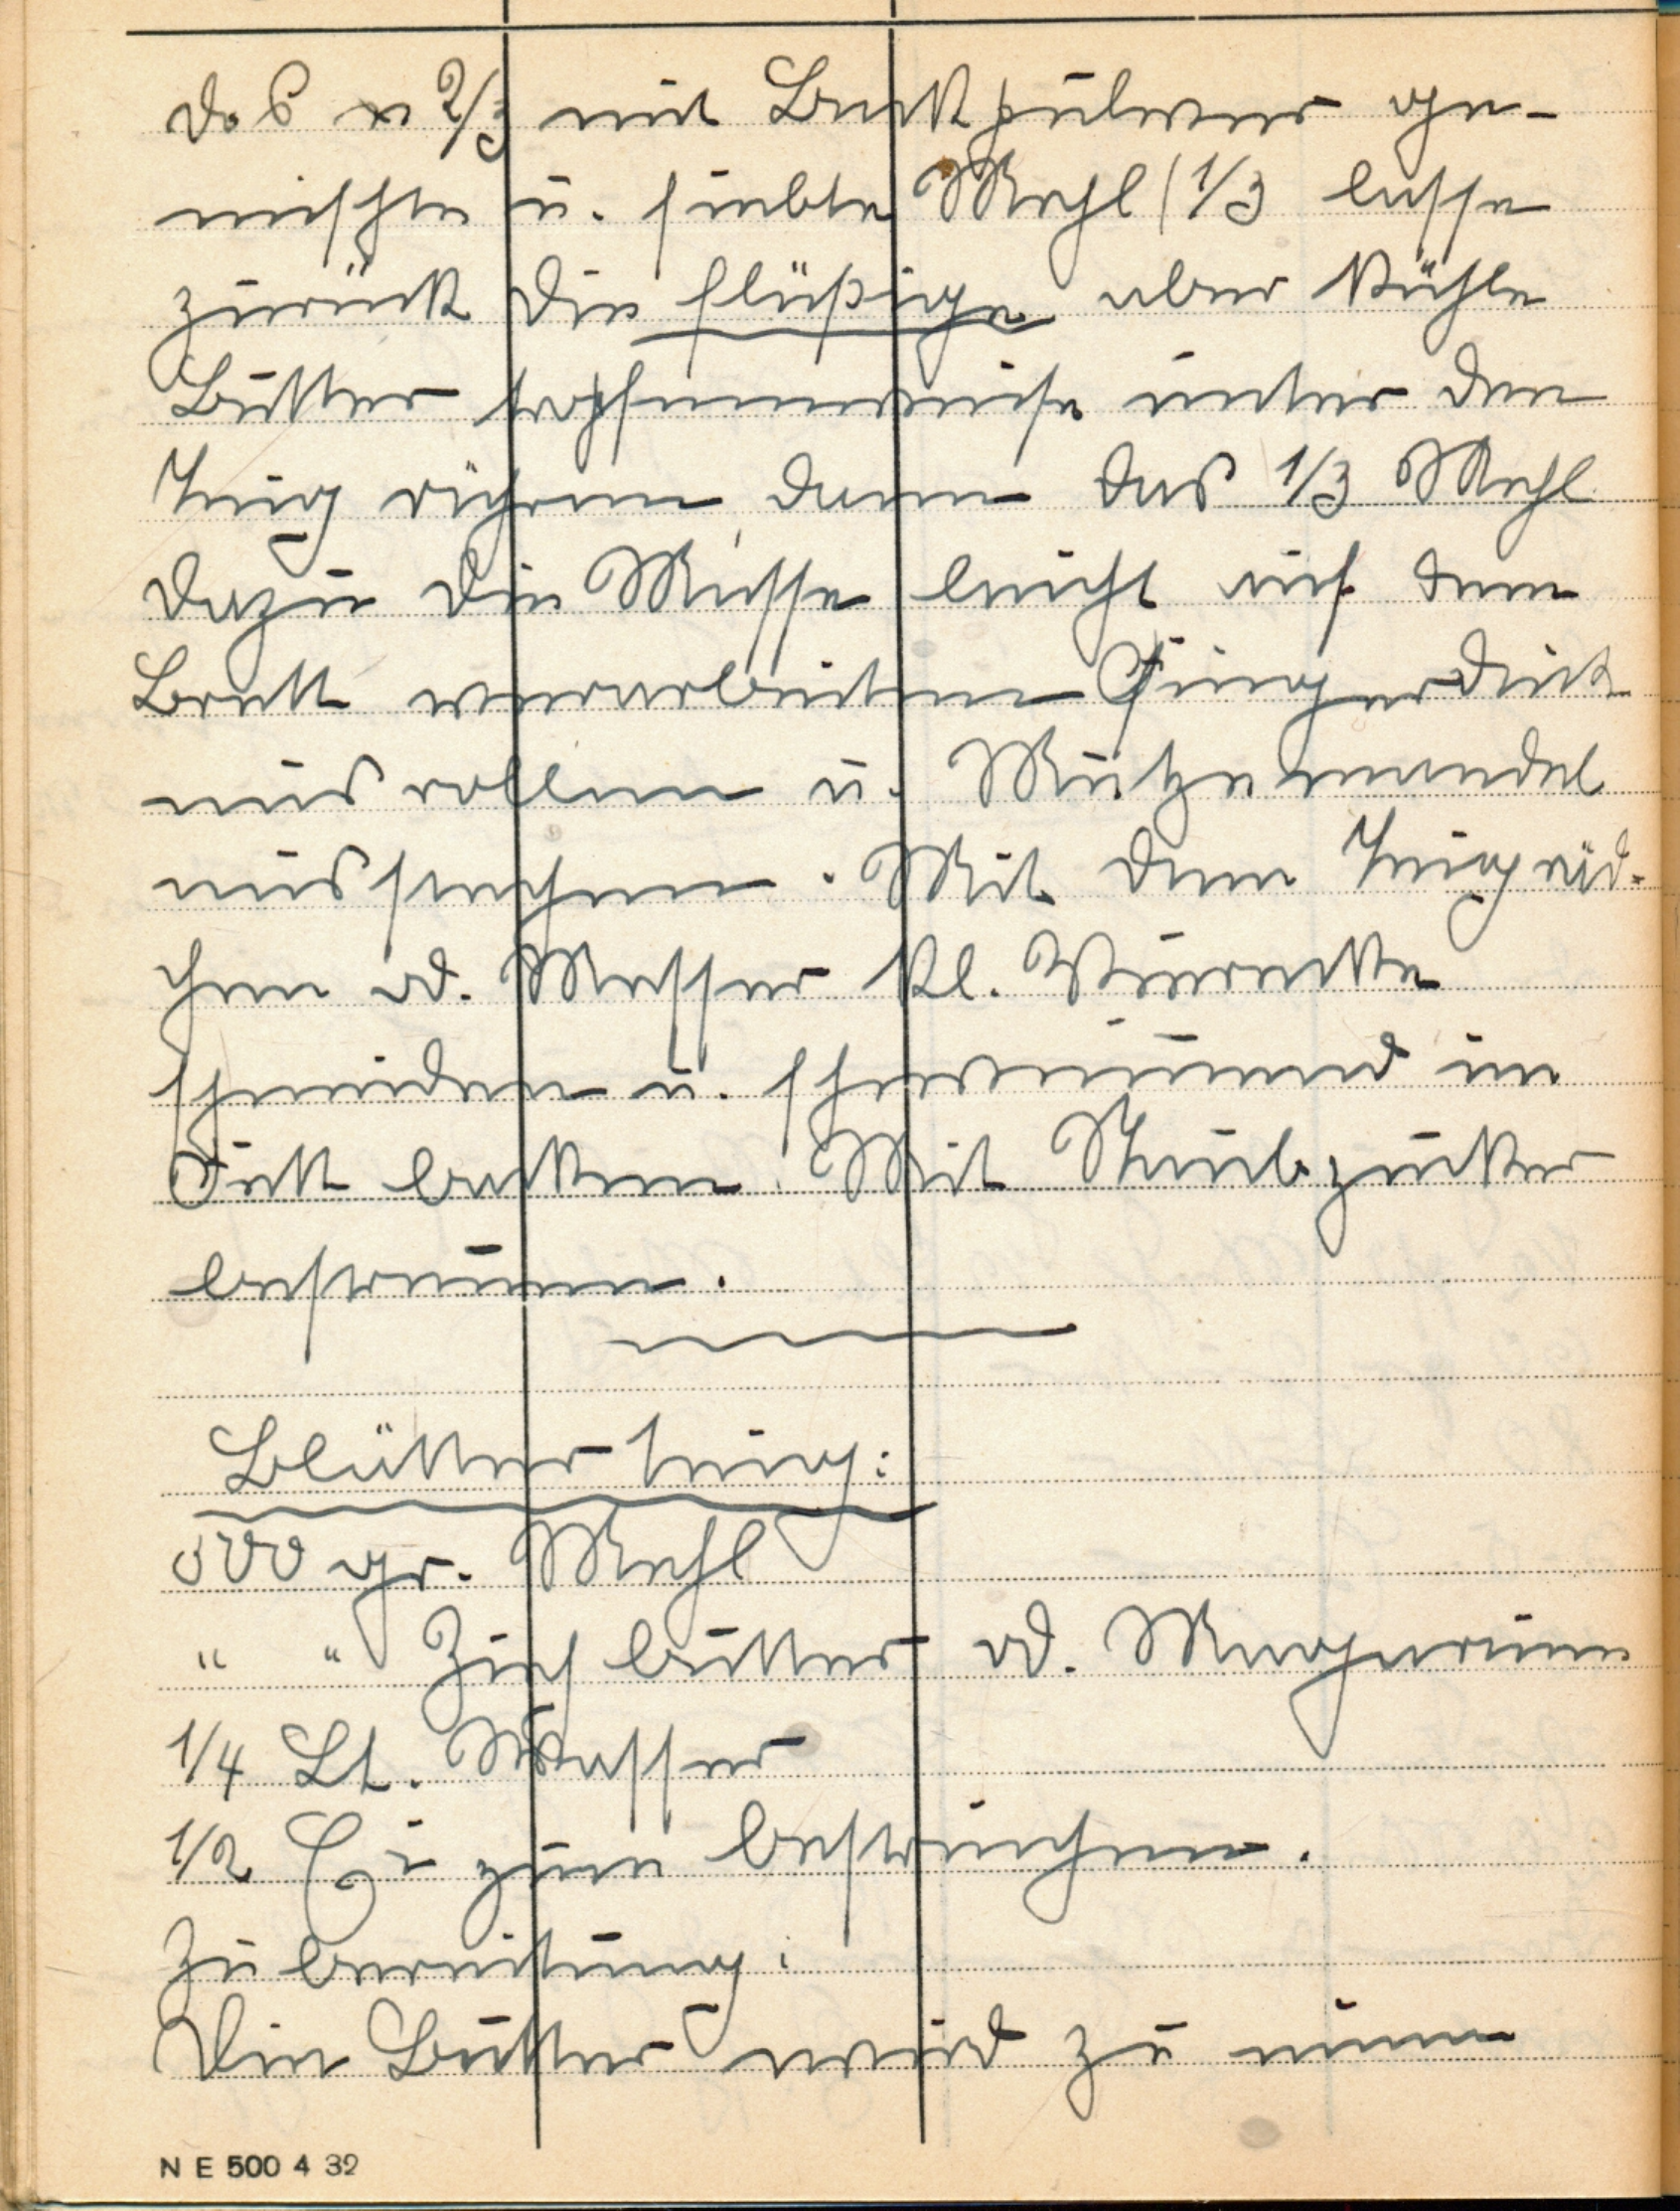 das 2/3 mit Backpulver ge-
mischte u. siebte Mehl (1/3 lasse
zurück die flüßige aber kühle
Butter tropfenweise unter den
Teig rühren dann das 1/3 Mehl
dazu die Masse leicht auf dem
Brett verarbeiten Fingerdick
ausrollen u. Mutzemandel
ausstechen. Mit dem Teigräd-
chen od. Messer kl. Vierecke
schneiden u. schwimmend im
Fett backen. Mit Staubzucker
bestreuen.
Blätterteig:
500 gr. Mehl
" " Ziehbutter od. Margarine
1/4 Lt. Wasser
1/2 Ei zum bestreichen.
Zubereitung:
Die Butter wird zu einem
N E 500 4 32